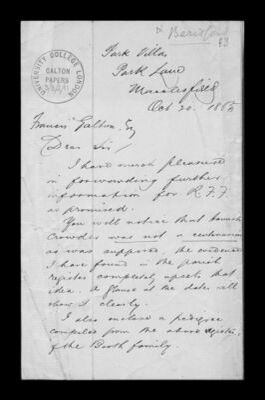 Beresford
UNIVERSITY COLLEGE LONDON
GALTON
PAPERS
Park Villa
Park Lane
Macclesfield
Oct 20. 1885
Francis Galton, Esq
Dear Sir/
I have much pleasure
in forwarding further
information for R.F.F
as promised.
You will notice that
Crowder was not a centenarian
as was supposed, the evidence
I have found in the parish
register completely upsets that
idea. A glance at the dates will
show it clearly.
I also enclose a pedigree
compiled from the above register,
of the Booth family.